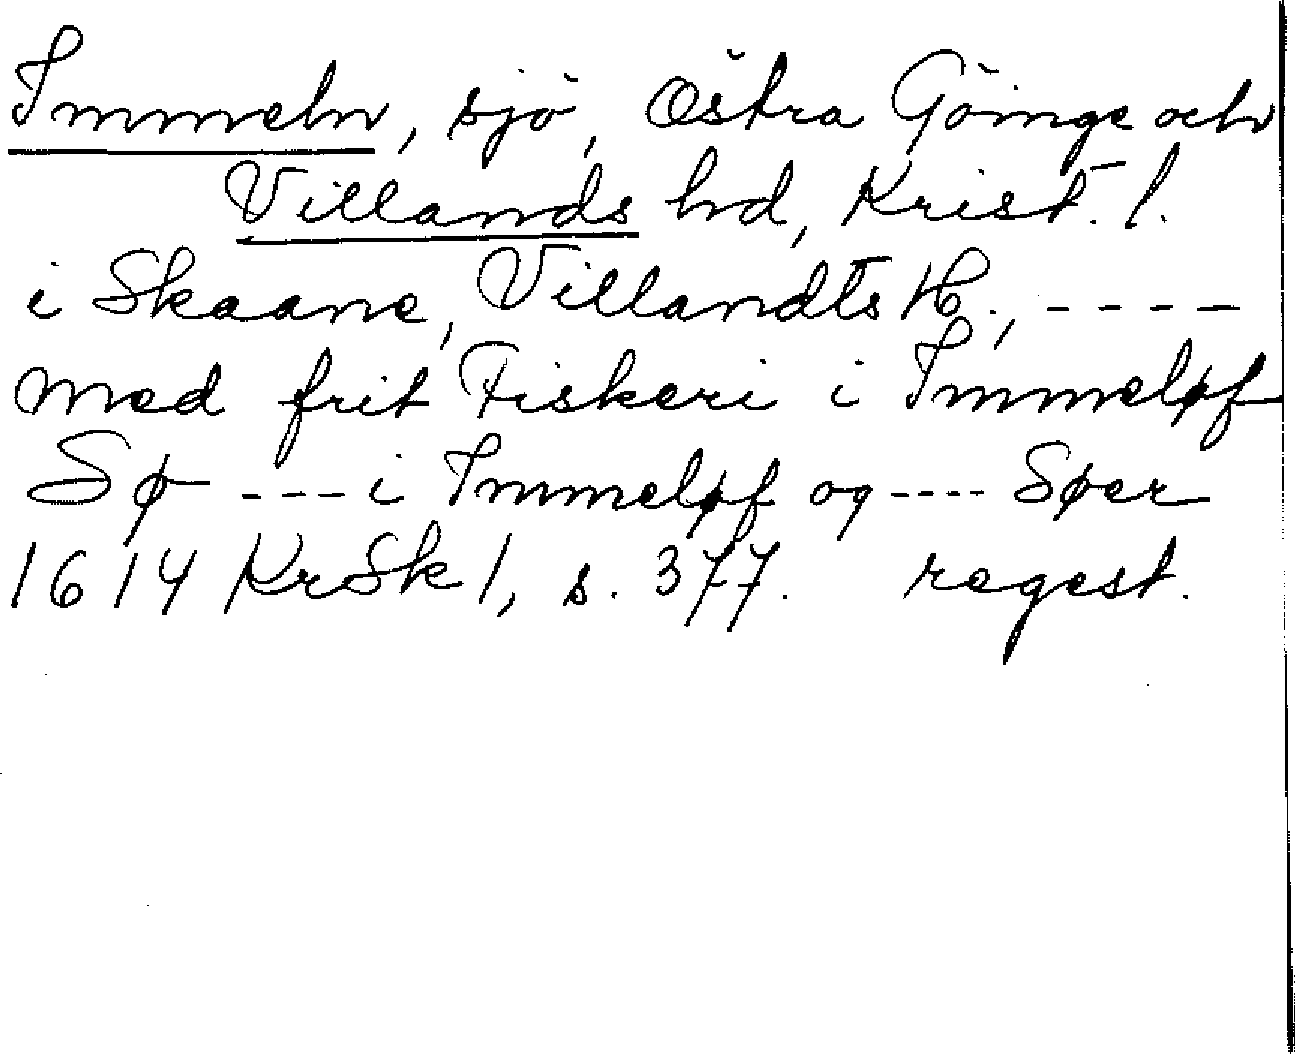 Immeln, sjö, Östra Göinge och
Villands hd, Krist. l.
i Skaane, Villandts H., ----
med frit Fiskeri i Immeløf
Sø --- i Immeløf og ---- Søer
1614 KrSk 1, s. 377. regest.